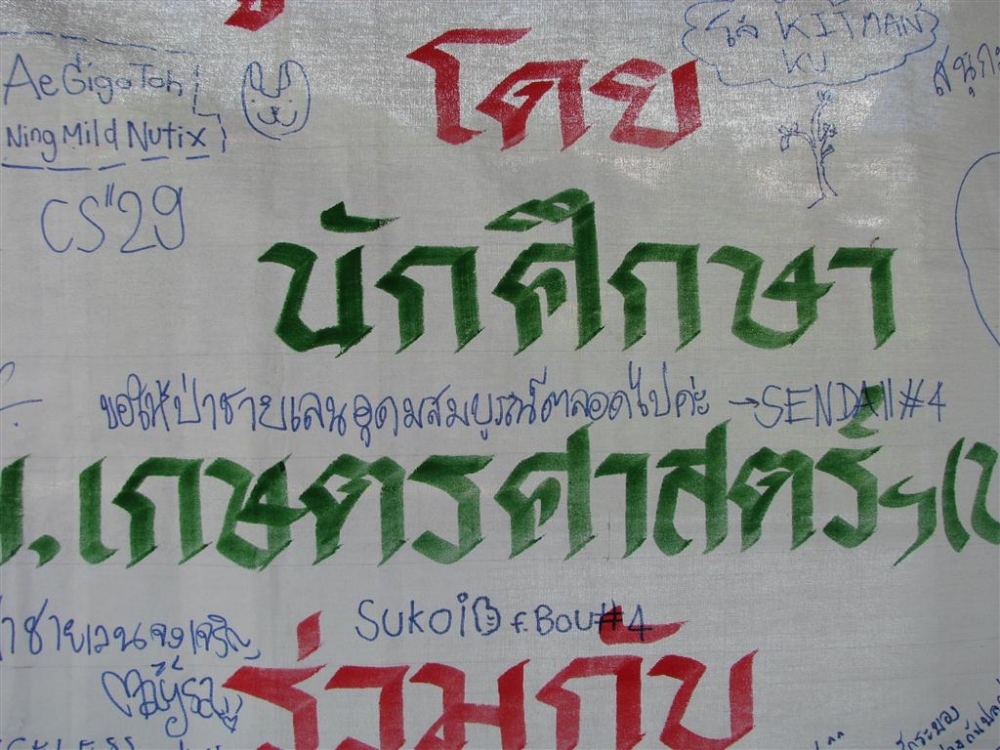 โดย
โส่ KITMAN
KU
AeGigoToh
Ning Mild Nutix
CS"29
นักศึกษา
ขอให้ป่าชายเลนอุดมสมบูรณ์ตลอดไปค่ะ → SENDAII#4
ม.เกษตรศาสตร์ฯ(บ
Sukoi f.Bou#4
ป่าชายเลนจงเจริญ
ร่วมกับ